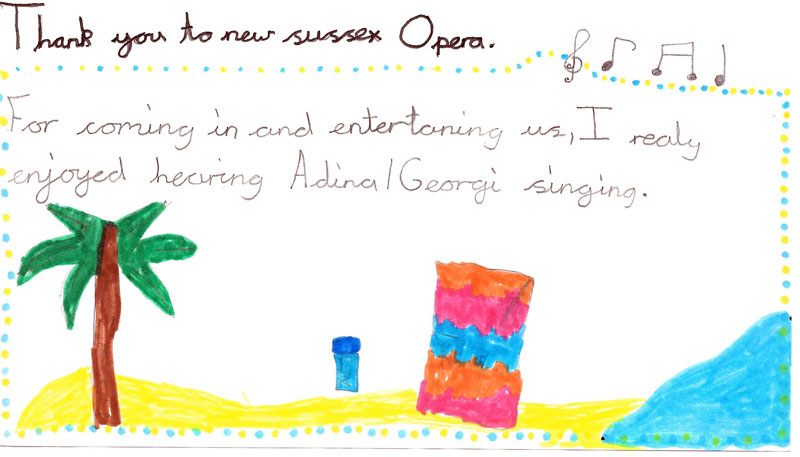 Thank you to new sussex Opera.
For coming in and entertaning us, I realy
enjoyed hearing Adina/Georgi singing.